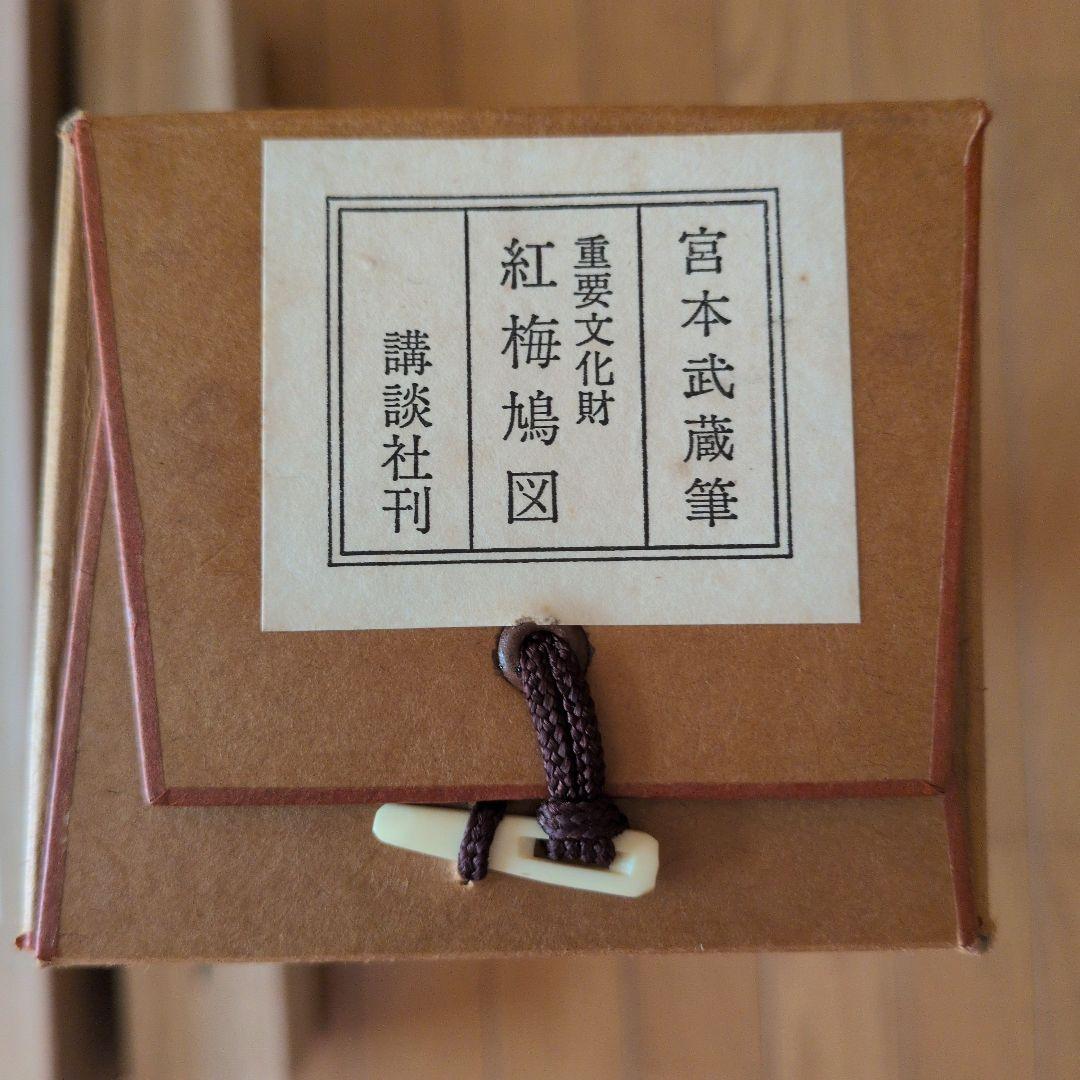 宮本武蔵筆
重要文化財
紅梅鳩図
講談社刊